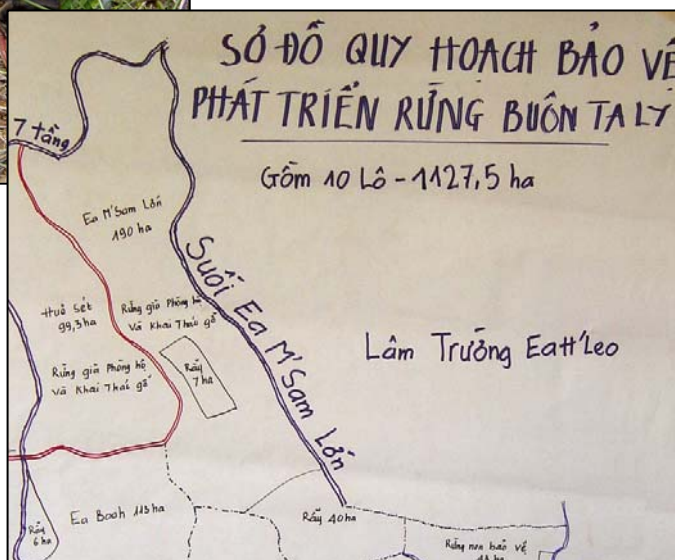 SỞ ĐỒ QUY HOẠCH BẢO VỆ
PHÁT TRIỂN RỪNG BUÔN TA LY
Gồm 10 Lô - 1127,5 ha
7 tầng
Ea M'Sam Lớn
190 ha
Suối Ea M'Sam Lớn
Huê Sét
99,3 ha
Rừng già Phòng hộ
Và Khai Thác gỗ
Rừng già Phòng hộ
Và Khai Thác gỗ
Rẫy
7 ha
Lâm Trường EaH'Leo
Ea Booh 113 ha
Rẫy
6 ha
Rẫy 40 ha
Rừng non bảo vệ